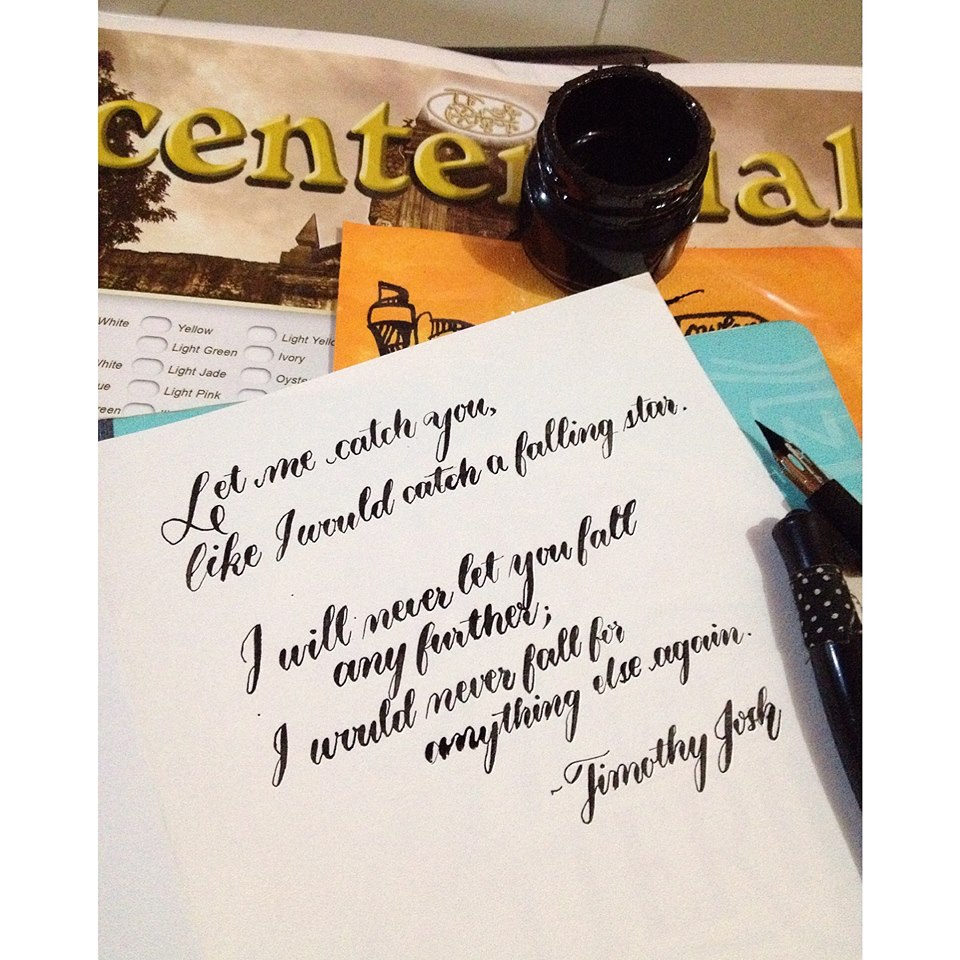 centennial
White
Yellow
Light Yell
Light Green
Ivory
White
Light Jade
Oyste
ue
Light Pink
reen
Let me catch you,
like I would catch a falling star.
I will never let you fall
any further;
I would never fall for
anything else again.
~Timothy Josh